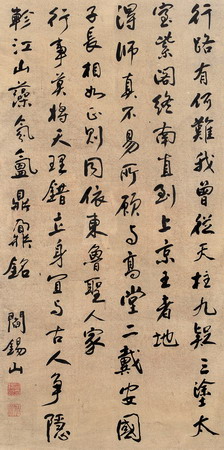 行路有何難我曾從天柱九疑三塗太
室紫閣終南直到上京王者地
得師真不易所願與高堂二戴安國
子長相如正則同依東魯聖人家
行事莫將天理錯立身宜與古人爭隱
軫江山藻氛氳鼎鼐銘 閻錫山